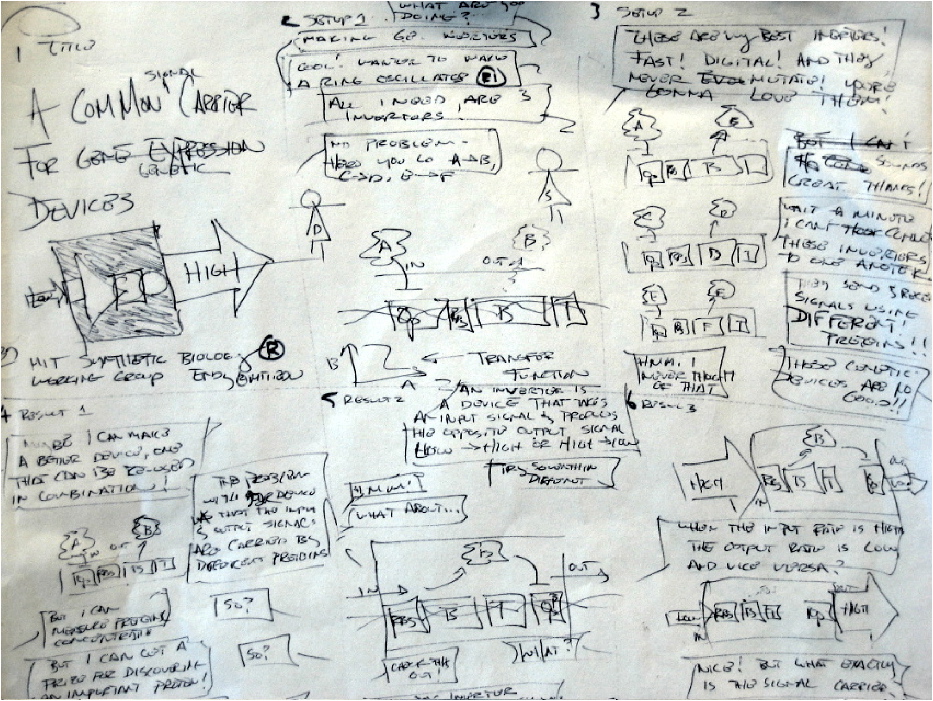 1 TITLE
A COMMON SIGNAL CARRIER
FOR GENE EXPRESSION
GENETIC
DEVICES
HIGH
MIT SYNTHETIC BIOLOGY
WORKING GROUP
2 SETUP 1
WHAT ARE YOU
DOING?
MAKING INVERTORS
COOL! I WANTED TO MAKE
A RING OSCILLATOR
ALL I NEED ARE 3
INVERTORS!
NO PROBLEM-
HERE YOU GO A→B,
C→D, E→F
D
S
A
B
IN
OUT
Op RBS B T
B
A
TRANSFER
FUNCTION
3 SETUP 2
THESE ARE MY BEST INVERTERS!
FAST! DIGITAL! AND THEY
NEVER EVER MUTATE! YOU'RE
GONNA LOVE THEM!
A
B
BUT I CAN'T
SOUNDS
GREAT THANKS!
WAIT A MINUTE
I CAN'T CONNECT
THESE INVERTORS
TO ONE ANOTHER
C
D
THEY SEND & RECEIVE
SIGNALS USING
DIFFERENT
PROTEINS!!
E
F
HMM. I
NEVER THOUGHT
OF THAT
THESE GENETIC
DEVICES ARE NO
GOOD!!
4 RESULT 1
MAYBE I CAN MAKE
A BETTER DEVICE, ONE
THAT CAN BE REUSED
IN COMBINATION!
THE PROBLEM
WITH DEVICE
THAT THE INPUT
& OUTPUT SIGNALS
ARE CARRIED BY
DIFFERENT PROTEINS
A
B
IN OUT
BUT I CAN
MEASURE PROTEIN
CONCENTRATION
SO?
BUT I CAN GET A
PRIZE FOR DISCOVERING
AN IMPORTANT PROTEIN!
SO?
5 RESULT 2
AN INVERTER IS
A DEVICE THAT TAKES
AN INPUT SIGNAL & PRODUCES
THE OPPOSITE OUTPUT SIGNAL
LOW → HIGH OR HIGH → LOW
TRY SOMETHING
DIFFERENT
HMM.
WHAT ABOUT...
B
IN
OUT
RBS B T Op
CHECK THIS
OUT!
WHAT?
INVERTOR
6 RESULT 3
HIGH
B
RBS B T Op
IN
OUT
WHEN THE INPUT RATE IS HIGH
THE OUTPUT RATE IS LOW
AND VICE VERSA?
LOW
IN
RBS B T Op
HIGH
NICE! BUT WHAT EXACTLY
IS THE SIGNAL CARRIER